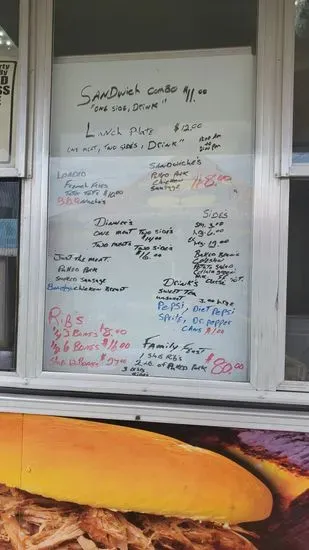 SANDwich combo $11.00
"ONE SIDE, DRINK"
Lunch Plate $12.00
ONE MEAT, TWO SIDES, DRINK"
LOADED
French Fries
Tater Tots $10.00
BBQ Nacho's
SANDwiche's
Pulled Pork
Chicken
Sausage
$8.00
Dinner's
ONE MEAT Two Side's
$14.00
Two Meats Two Side's
$16.00
SIDES
Baked Beans
Coleslaw
Potato Salad
Just the MEAT.
Pulled Pork
Smoked Sausage
Chicken Breast
DRINK'S
SWEET Tea
unsweet
Pepsi, Diet Pepsi
Sprite, Dr. pepper
CANS $1.00
RiBS
1/3 Bones $8.00
1/2 6 Bones $16.00
Family Feast
1 Slab Rib's
2 LB. of Pulled Pork
3 LRG Sides
$80.00